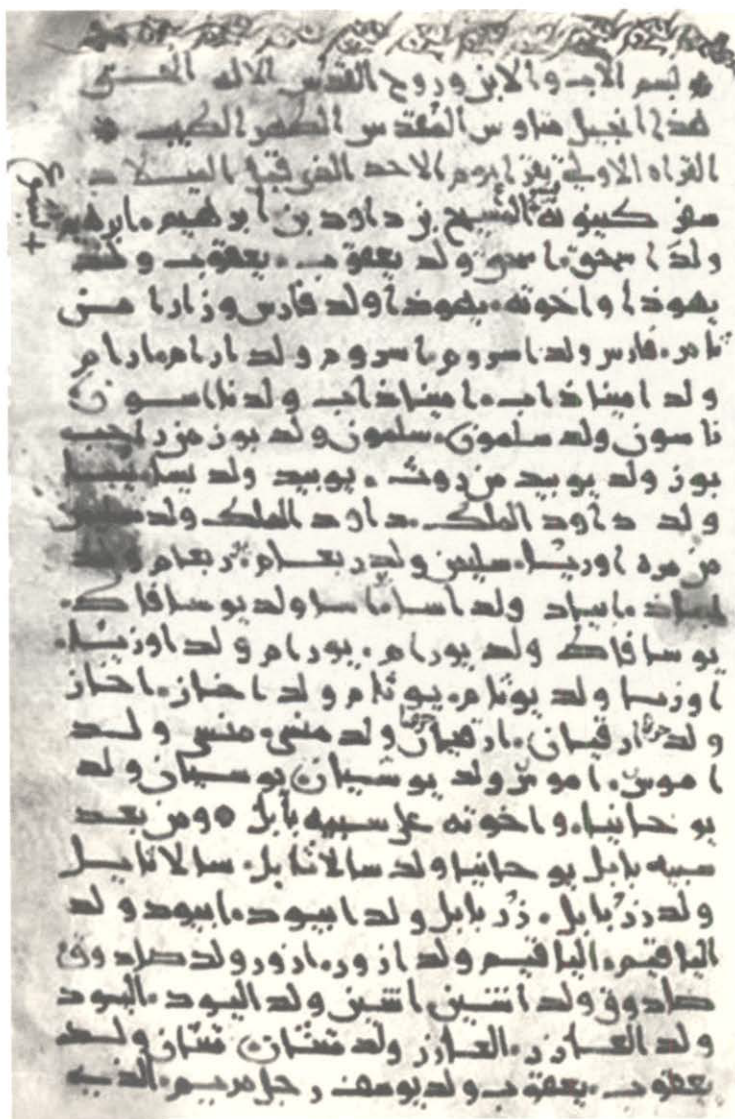 بسم الاب والابن وروح القدس الاله
هذا انجيل متاوس المقدس الطهر الطيب
القراه الاولى يقرا يوم الاحد الذي قبل الميلاد
سفر كينونة المسيح بن داود بن ابرهيم ابرهيم
ولد اسحق اسحق ولد يعقوب يعقوب ولد
يهوذا واخوته يهوذا ولد فارس وزارا من
تامر فارس ولد اسروم اسروم ولد ارام ارام
ولد اميناذاب اميناذاب ولد نااسون
ناسون ولد سلمون سلمون ولد بوز من
بوز ولد يوبيد من روث يوبيد ولد يسا
ولد داود الملك داود الملك ولد
من مره اوريا سليمن ولد ربعام ربعام ولد
ابياد ولد اسا اسا ولد يوسافاط
يوسافاط ولد يورام يورام ولد اوزيا
اوزيا ولد يوثام يوثام ولد احاز احاز
ولد ولد منسى منسى ولد
اموس اموس ولد يوشيان يوسيان ولد
يوحانيا واخوته على سبيه بابل ومن بعد
سبيه بابل يوحانيا ولد سالاثايل سالاثايل
ولد زربابل زربابل ولد ابيود ابيود ولد
الياقيم الياقيم ولد ازور ازور ولد صادوق
صادوق ولد اشين اشين ولد اليود اليود
ولد العازر العازر ولد متثان متثان ولد
يعقوب يعقوب ولد يوسف رجل مريم الذي